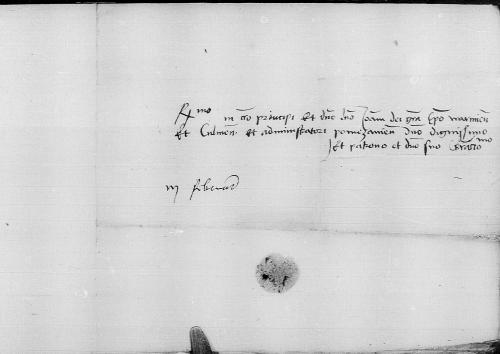 R[mo] in χo principi et dno dno Joanni dei gra Epo warmien
et Culmen et administratori pomezanien dno dignissimo
et patrono et dno suo gratiosmo
in febrari